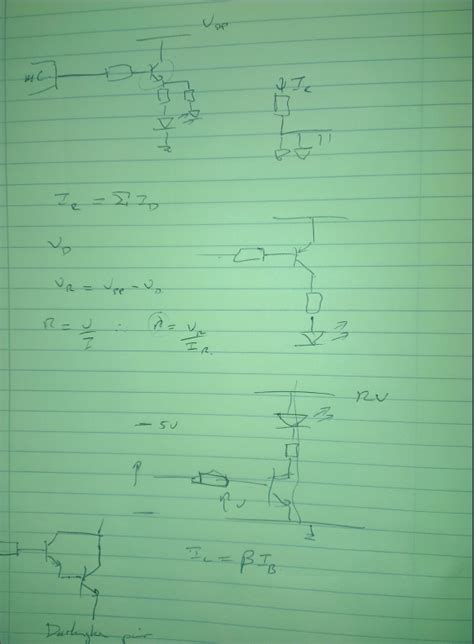 V_PP
MC
I_R
I_R = Σ I_D
V_D
V_R = V_PP - V_D
R = V/I ∴ R = V_R/I_R
RV
- 5V
I_C = β I_B
Darlington pair